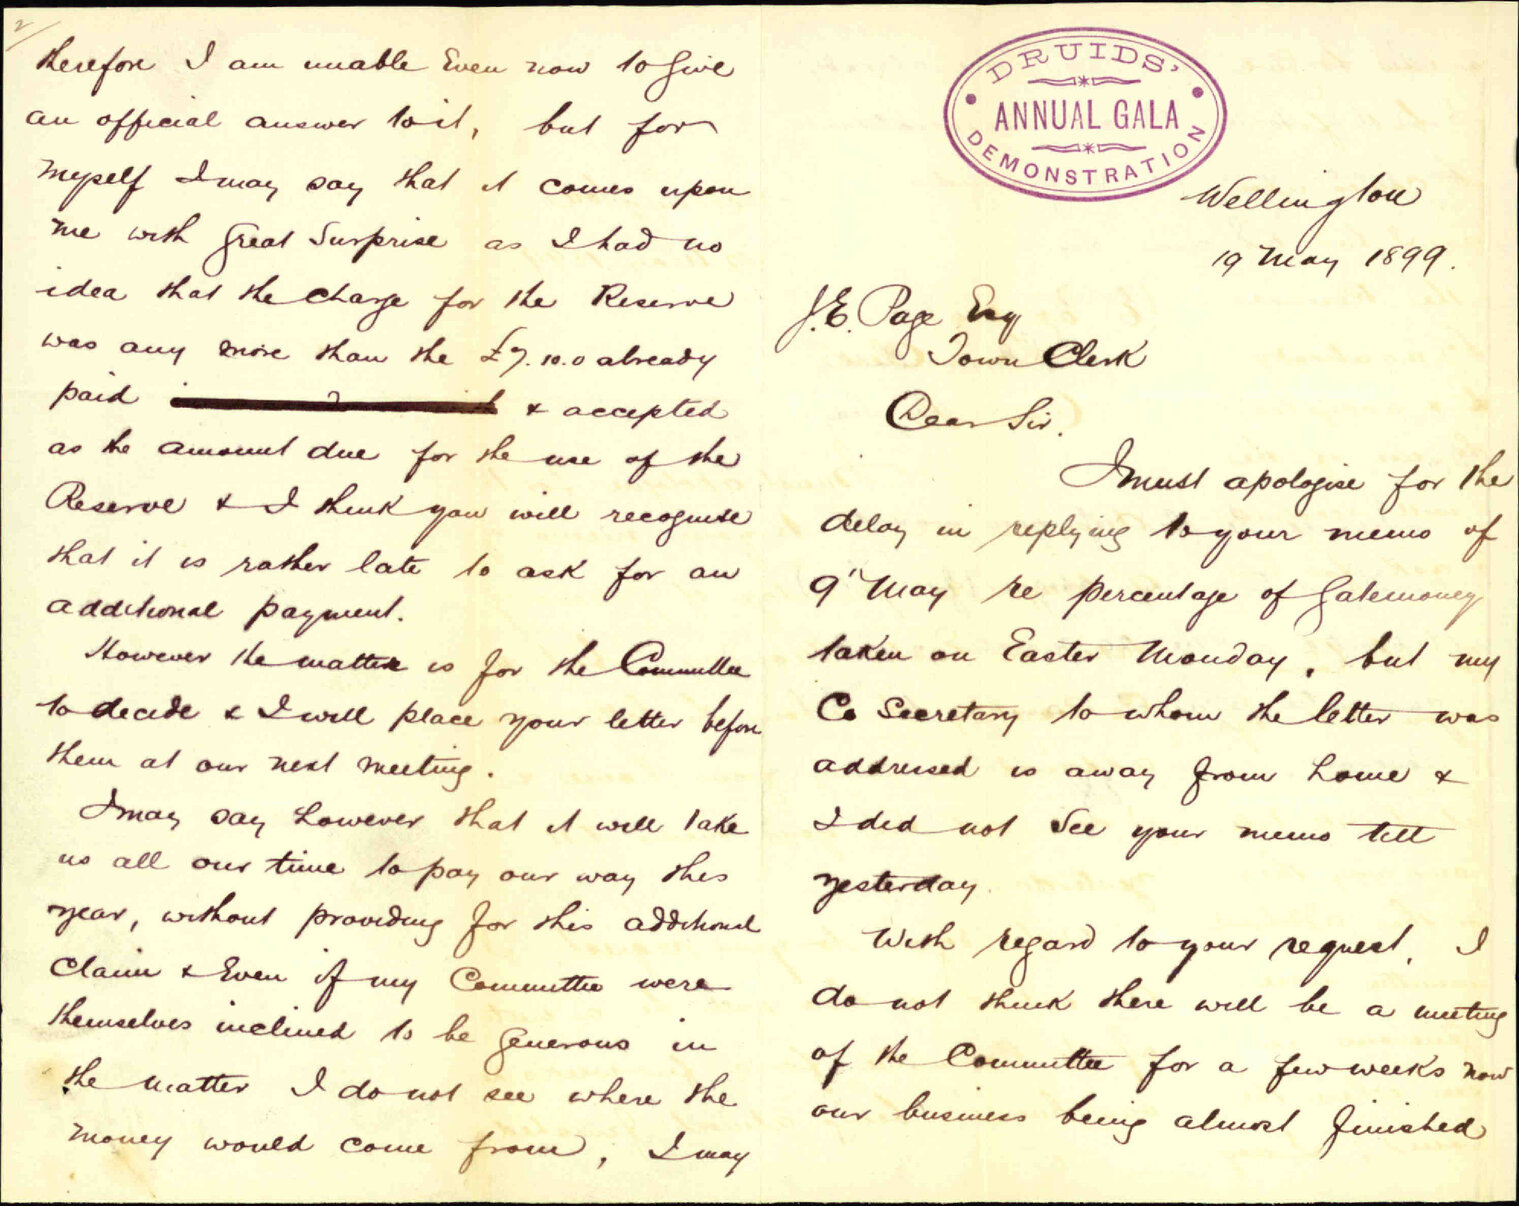 DRUIDS'
ANNUAL GALA
DEMONSTRATION
Wellington
19 May 1899.
J.E. Page Esq
Town Clerk
Dear Sir.
I must apologise for the
delay in replying to your memo of
9" May re percentage of Gatemoney
taken on Easter Monday, but my
Co Secretary to whom the letter was
addressed is away from home &
I did not see your memo till
yesterday.
With regard to your request, I
do not think there will be a meeting
of the Committee for a few weeks now
our business being almost finished
2/
therefore I am unable Even now to give
an official answer to it, but for
myself I may say that it comes upon
me with great Surprise as I had no
idea that the charge for the Reserve
was any more than the £7.10.0 already
paid & accepted
as the amount due for the use of the
Reserve & I think you will recognise
that it is rather late to ask for an
additional payment.
However the matter is for the Committee
to decide & I will place your letter before
them at our next meeting.
I may say however that it will take
us all our time to pay our way this
year, without providing for this additional
Claim & Even if my Committee were
themselves inclined to be generous in
the matter I do not see where the
money would come from, I may